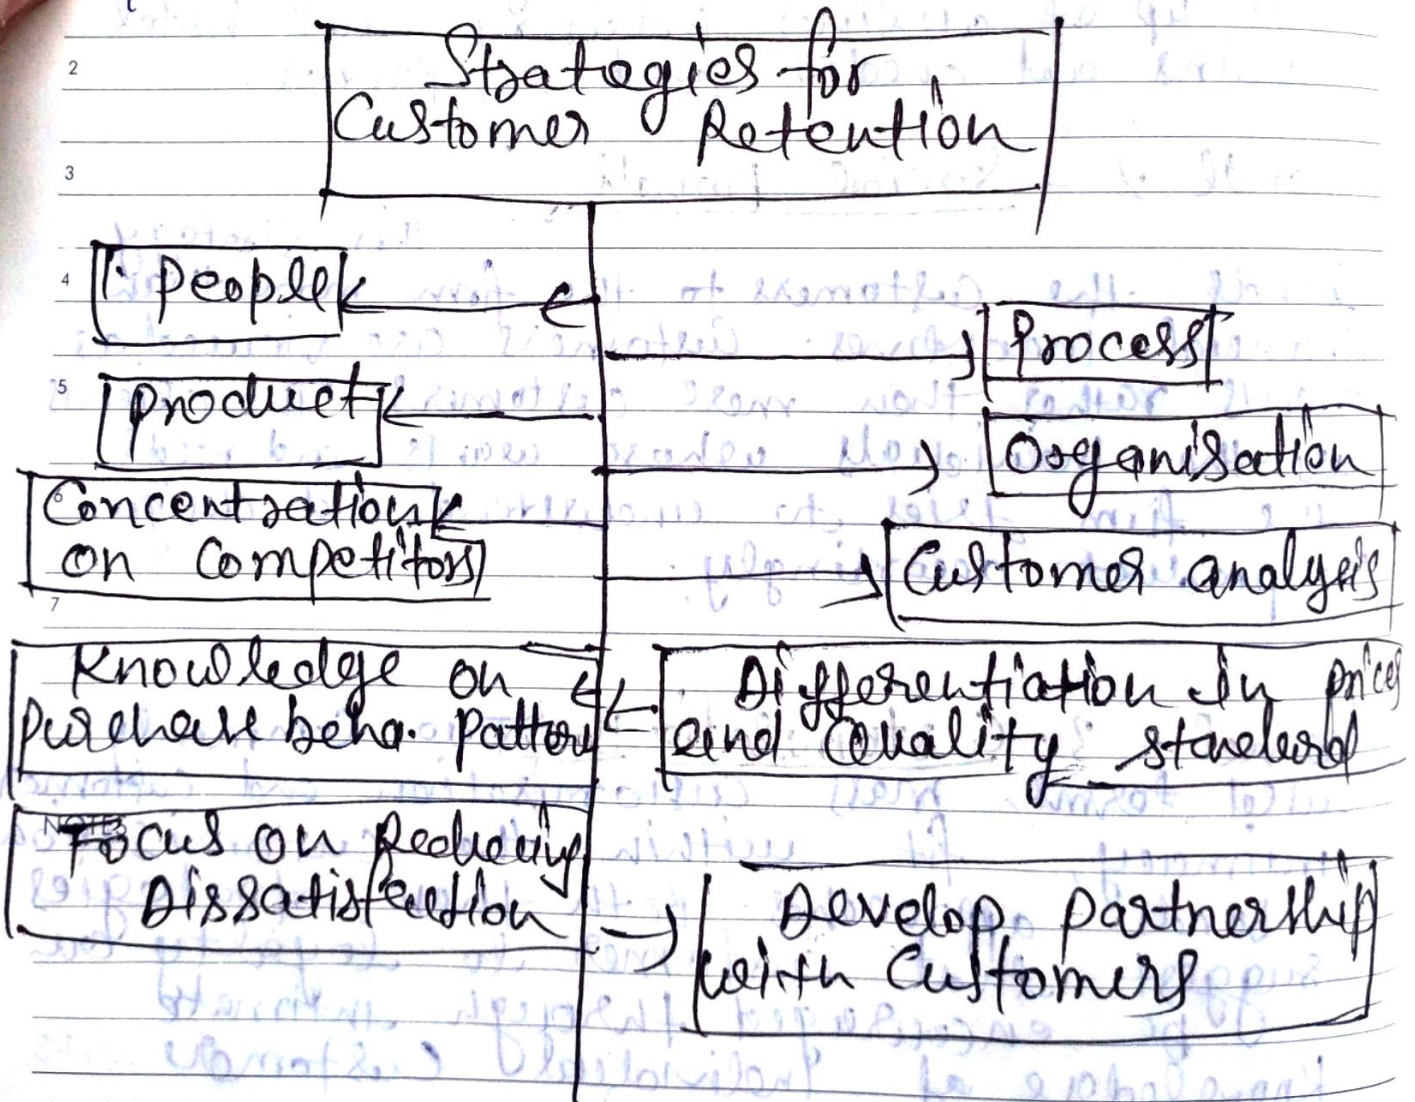 Strategies for
Customer Retention
People
Process
Product
Organisation
Concentration
on Competitors
Customer analysis
Knowledge on
Purchase beha. Pattern
Differentiation in prices
and Quality standard
Focus on Reducing
Dissatisfaction
Develop Partnership
with Customers
2
3
4
5
6
7